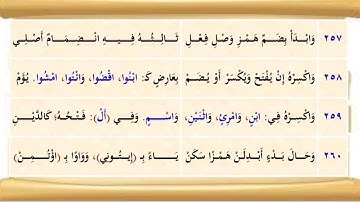 ٢٥٧ وَابْدَأْ بِضَمٍّ هَمْزَ وَصْلِ فِعْلٍ ثَالِثُهُ فِيهِ انْضِمَامٌ أَصْلِي
٢٥٨ وَاكْسِرْهُ إِنْ يُفْتَحْ وَيُكْسَرْ أَوْ يُضَمّ بِعَارِضٍ كَـ: ابْنُوا، اقْضُوا، وَائْتُوا، امْشُوا. يُؤَمّ
٢٥٩ وَاكْسِرْهُ فِي: ابْنٍ، وَامْرِئٍ، وَاثْنَيْنِ، وَاسْمٍ. وَفِي (أَلْ): فَتْحُهُ؛ كَالدَّيْنِ
٢٦٠ وَحَالَ بَدْءٍ أَبْدِلَنْ هَمْزًا سَكَنْ يَاءً بِـ (إِيتُونِي)، وَوَاوًا بِـ (اؤْتُمِنْ)